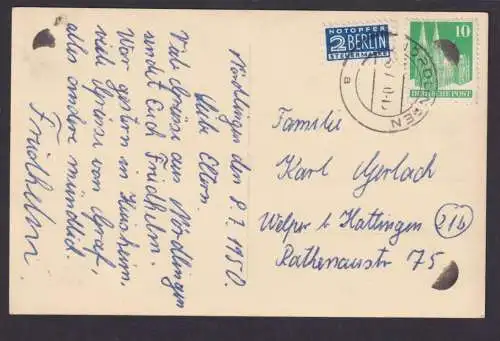 Nördlingen den 8.7.1950.
Liebe Eltern.
Viele Grüsse aus Nördlingen
sendet Euch Friedhelm.
War gestern in Zinsheim.
viele Grüsse von Graf,
alles andere mündlich.
Friedhelm
NOTOPFER
2 BERLIN
STEUERMARKE
10
DEUTSCHE POST
NÖRDLINGEN
a
Familie
Karl Gerlach
Welper b/ Hattingen (21b)
Rathenaustr 75